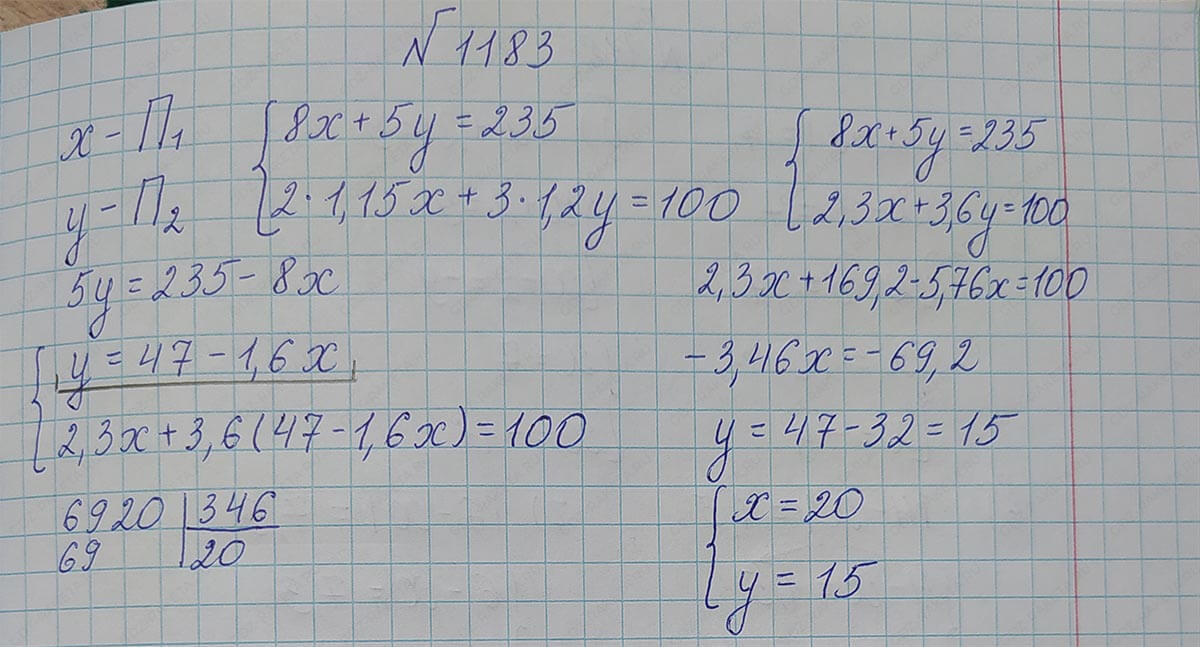 № 1183
x - П₁
y - П₂
{ 8x + 5y = 235
2·1,15x + 3·1,2y = 100
{ 8x + 5y = 235
2,3x + 3,6y = 100
5y = 235 - 8x
{ y = 47 - 1,6x
2,3x + 3,6(47 - 1,6x) = 100
6920 | 346
69 | 20
2,3x + 169,2 - 5,76x = 100
-3,46x = -69,2
y = 47 - 32 = 15
{ x = 20
y = 15